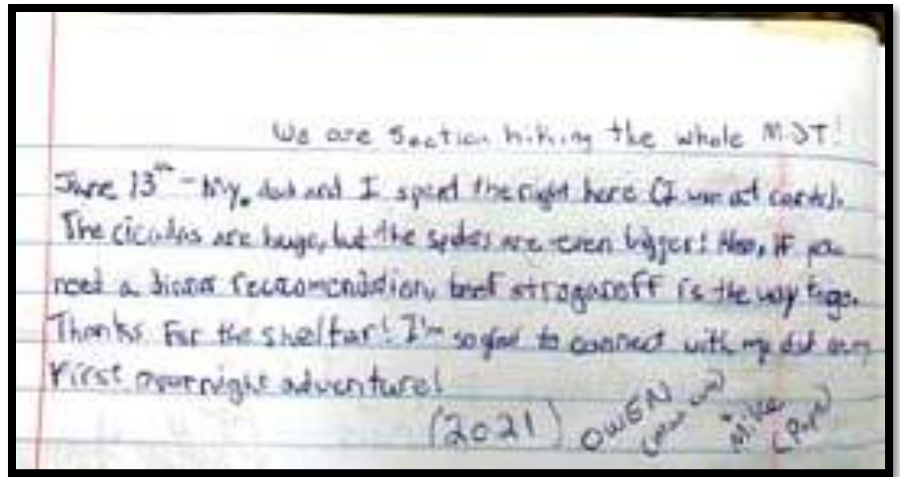 We are Section hiking the whole MST!
June 13th - My dad and I spent the night here (I won at cards).
The cicadas are huge, but the spiders are even bigger! Also, if you
need a dinner reccomendation, beef stroganoff is the way to go.
Thanks For the sheltar! I'm so glad to connect with my dad on my
First overnight adventure!
(2021) OWEN
Mike
(Papa)